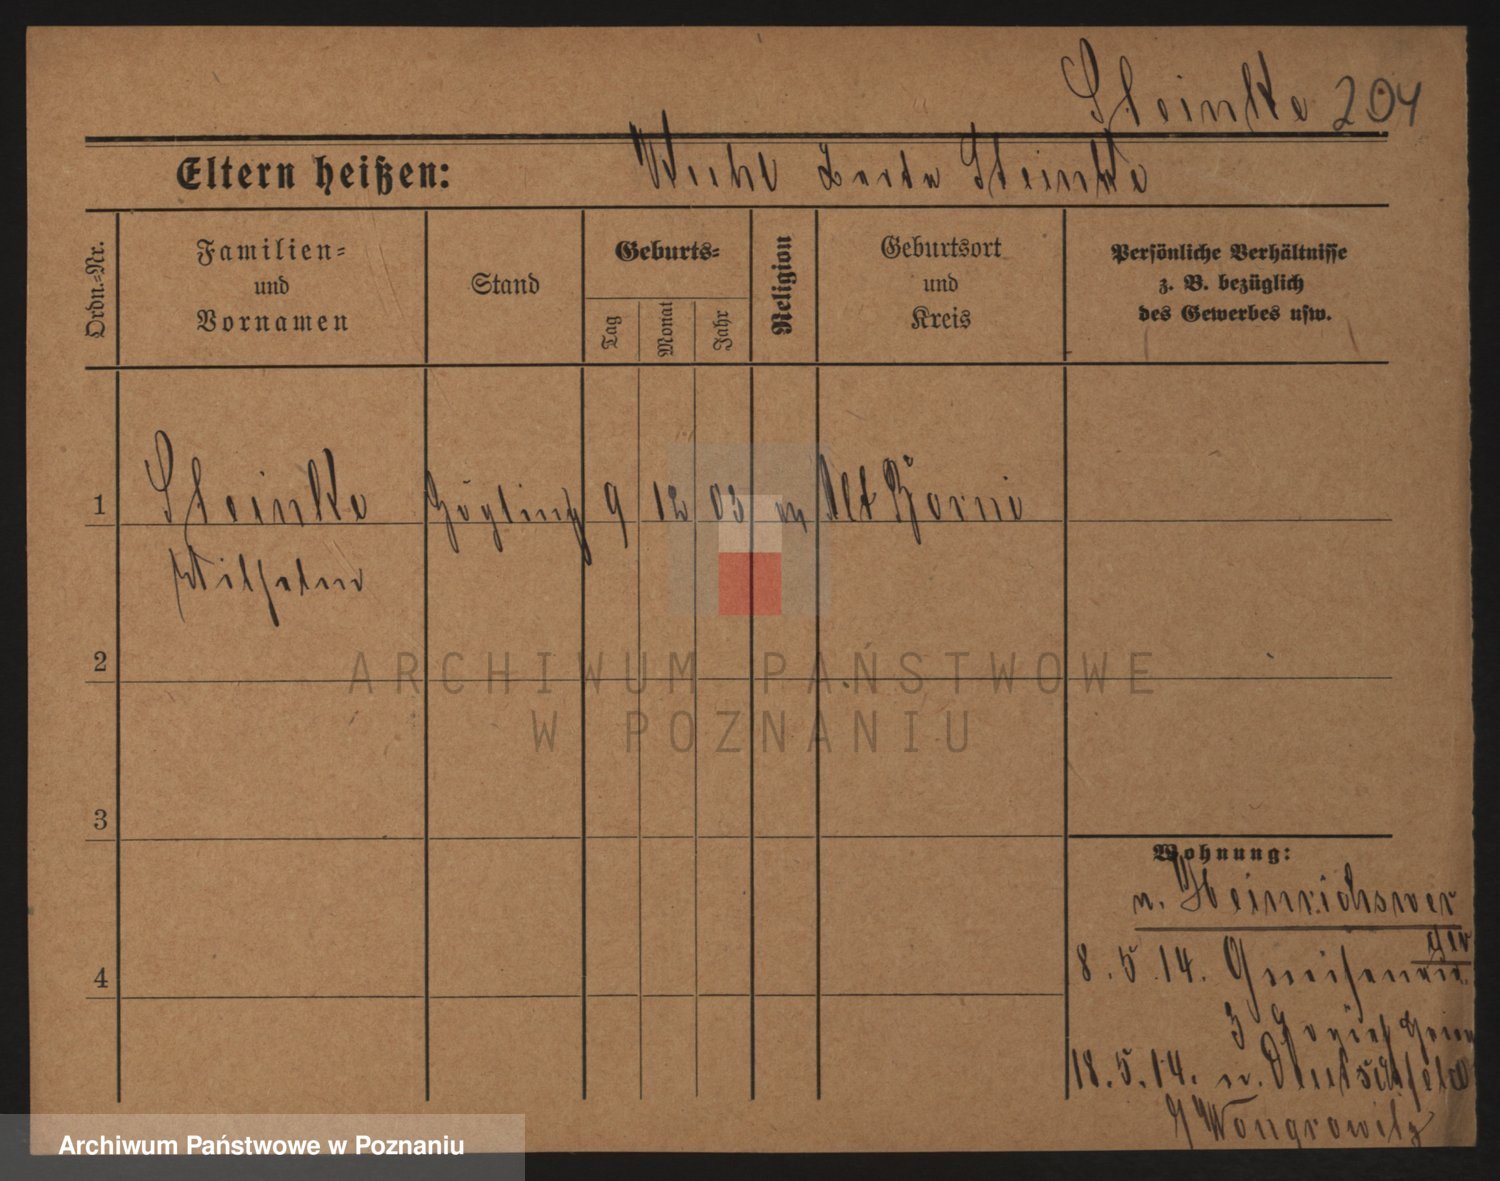 Steinke 204
Eltern heißen: Berta Steinke
Ordn.-Nr.
Familien-
und
Vornamen
Stand
Geburts-
Tag
Monat
Jahr
Religion
Geburtsort
und
Kreis
Persönliche Verhältnisse
z. B. bezüglich
des Gewerbes usw.
1 Steinke Zögling 9 12 03 Alt
Wilhelm
2
ARCHIWUM PAŃSTWOWE
W POZNANIU
3
Wohnung:
n. Heinrichs
8. 5. 14.
18. 5. 14. n.
Wongrowitz
4
Archiwum Państwowe w Poznaniu